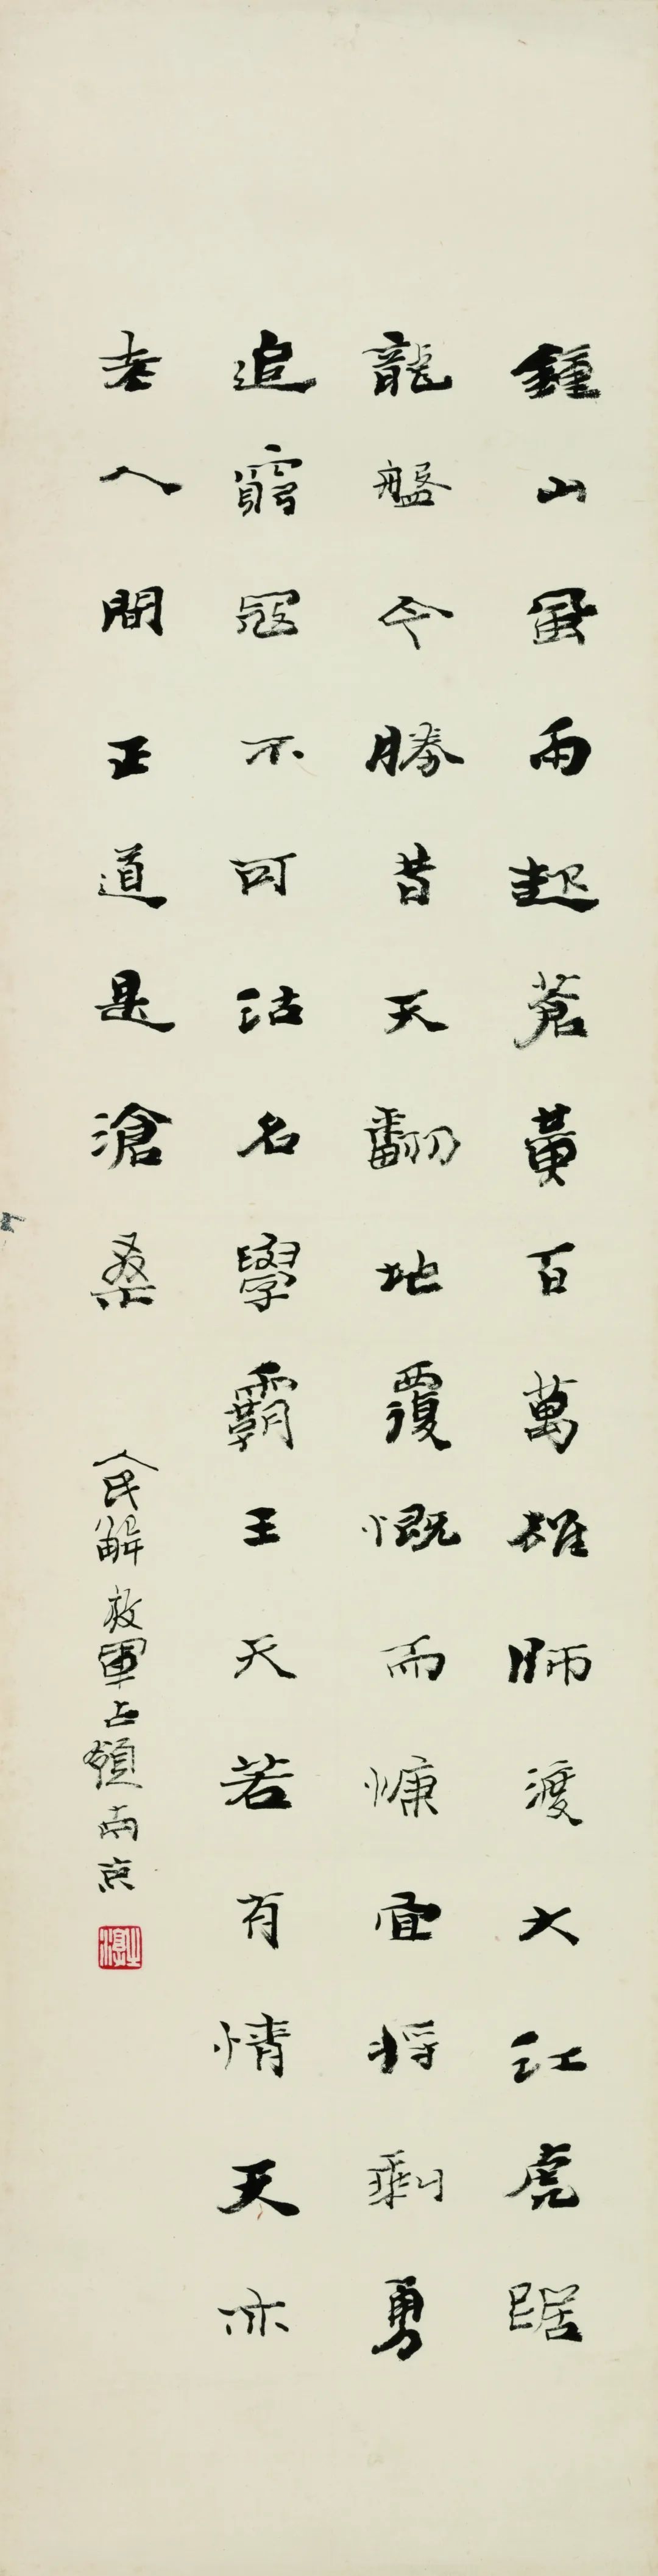 鍾山風雨起蒼黃百萬雄師渡大江虎踞
龍盤今勝昔天翻地覆慨而慷宜將剩勇
追窮寇不可沽名學霸王天若有情天亦
老人間正道是滄桑
人民解放軍占領南京